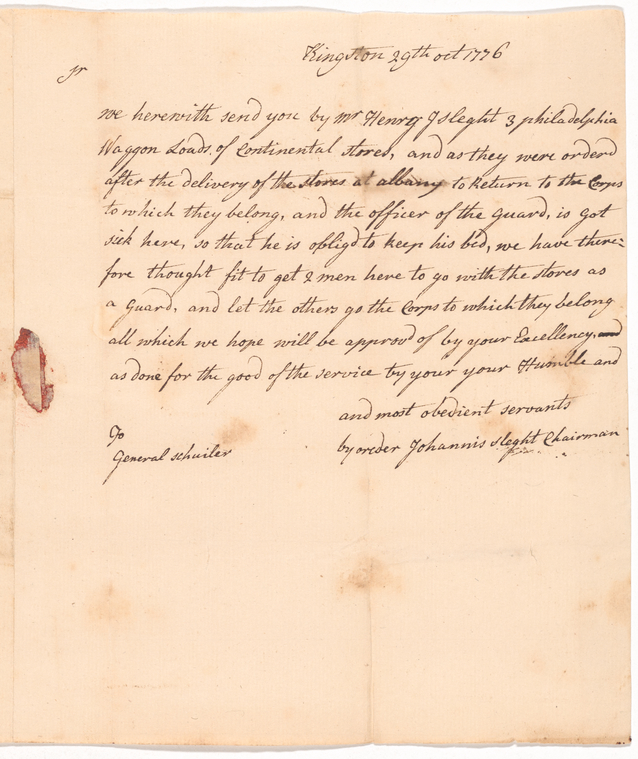 Kingston 29th oct 1776
Sr
we herewith send you by mr Henry J sleght 3 philadelphia
Waggon Loads of Continental stores, and as they were orderd
after the Delivery of the stores at albany to Return to the Corps
to which they belong, and the officer of the Guard, is got
sick here, so that he is obligd to keep his bed, we have there=
fore thought fit to get 2 men here to go with the stores as
a Guard, and let the others go the Corps to which they belong
all which we hope will be approvd of by your Excellency, and
as done for the good of the service by your your Humble and
and most obedient servants
To
General schuiler
by order Johannis Sleght Chairman